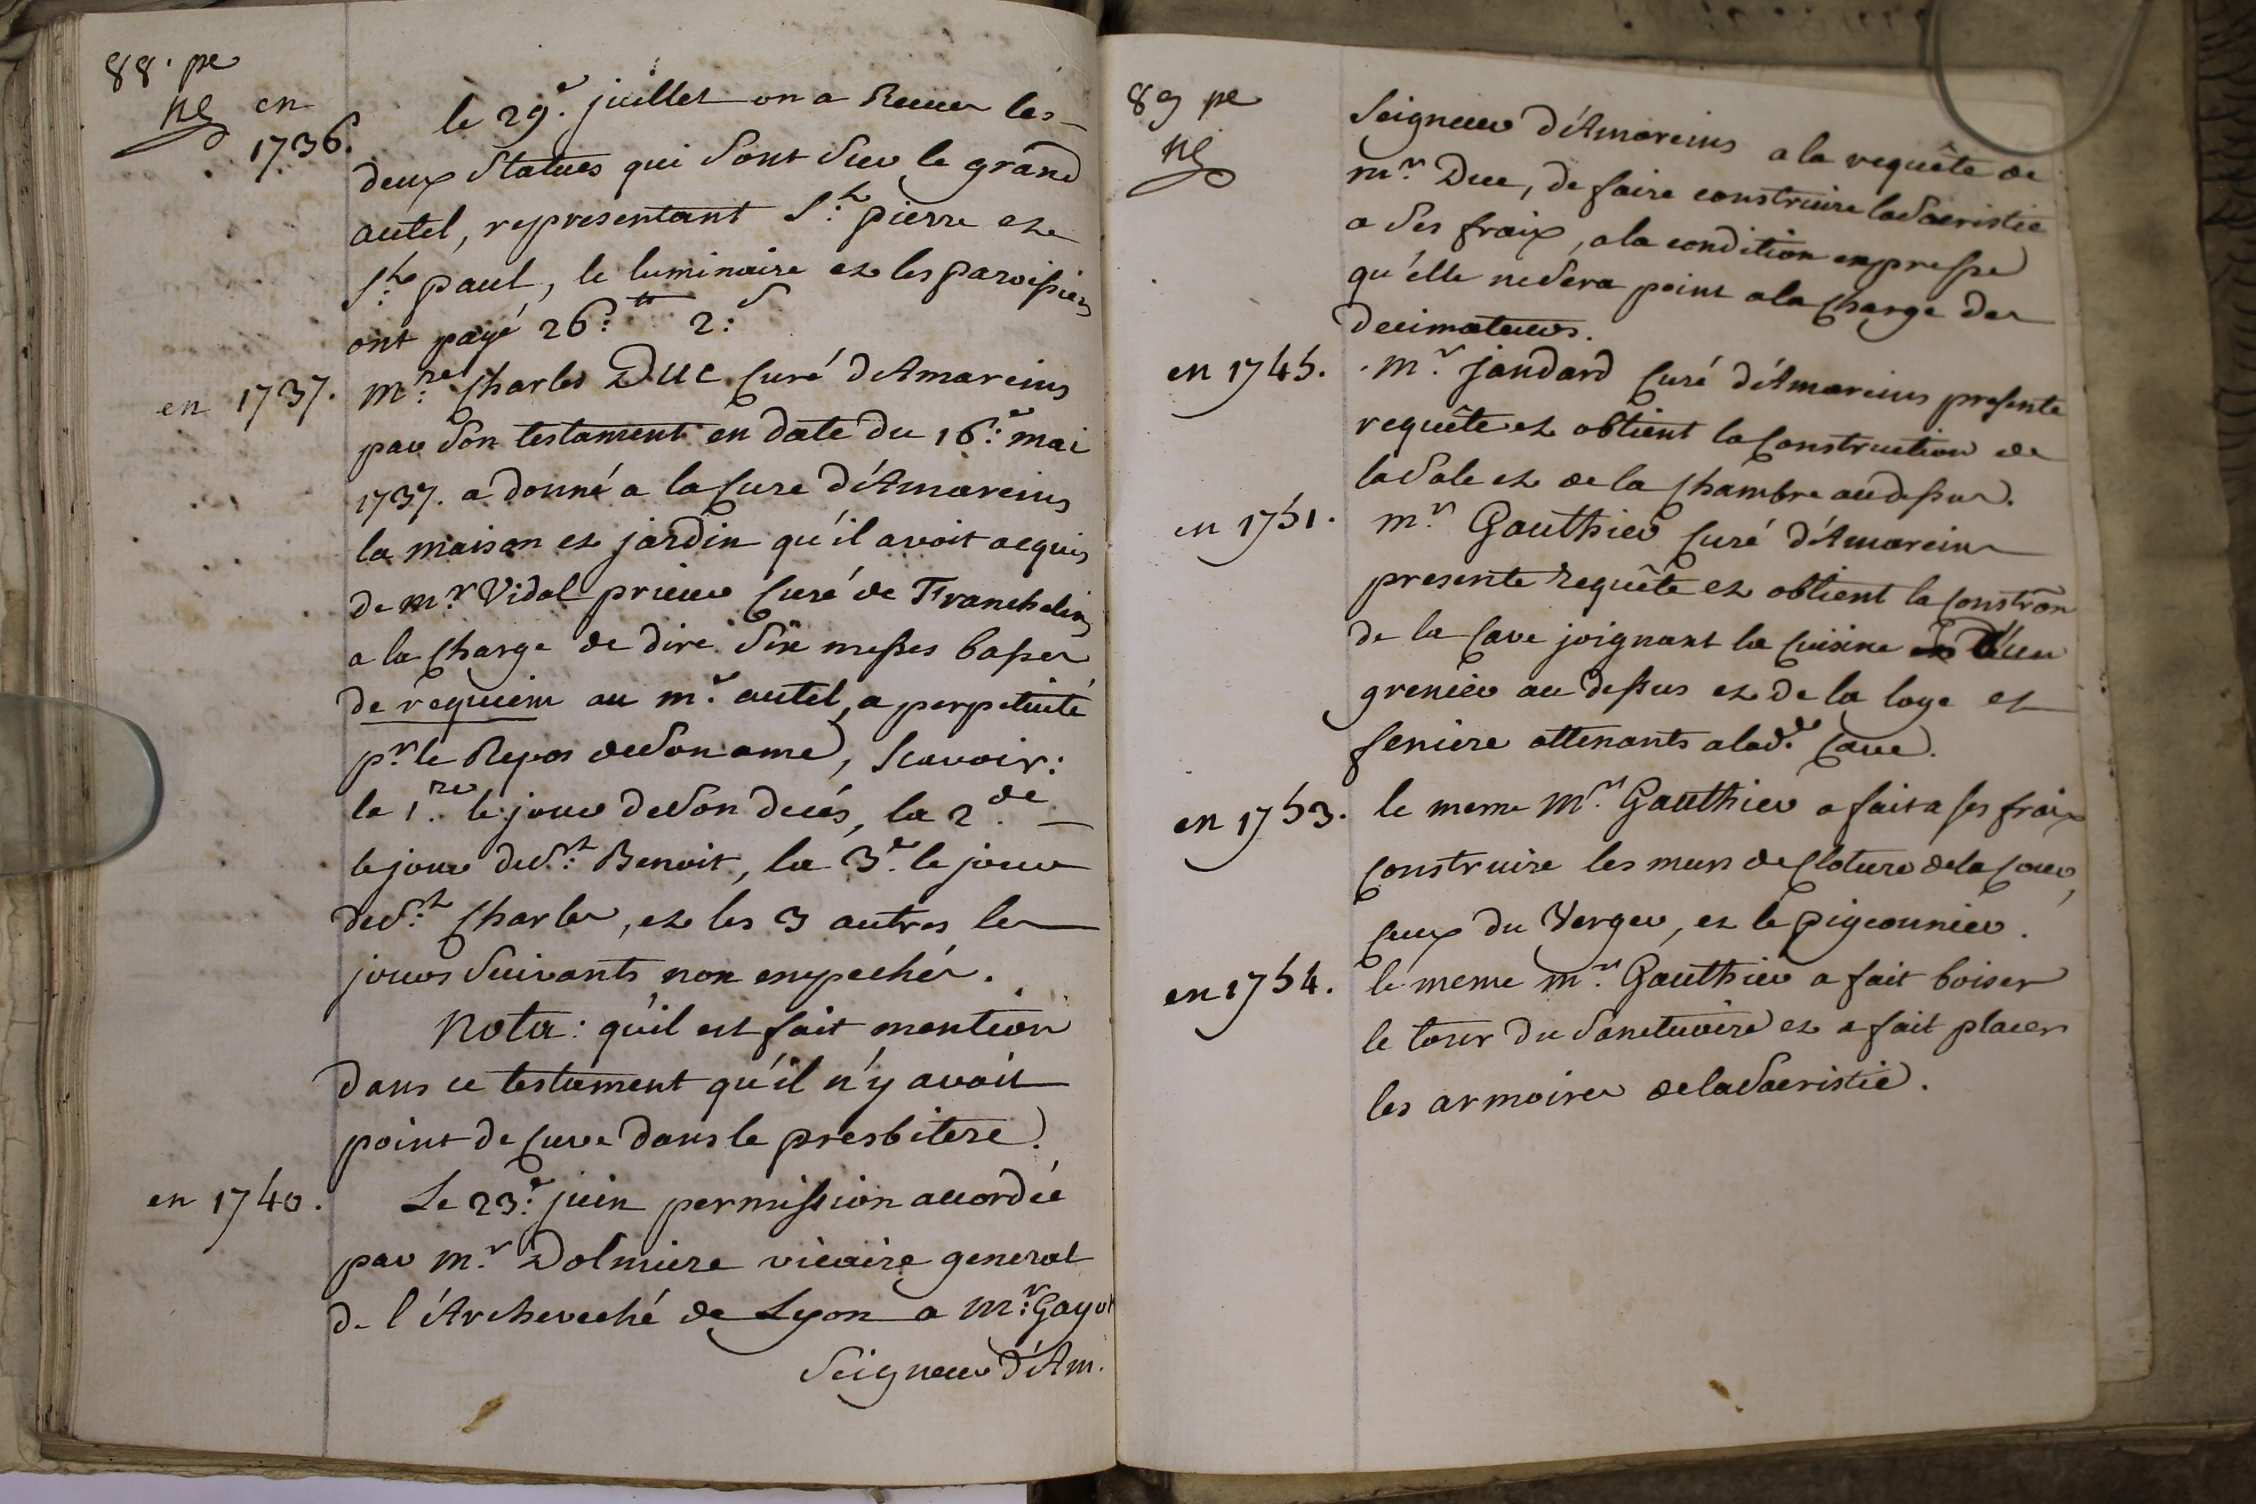 88. pe
en
1736.
le 29.e juillet on a Recue les
deux Statues qui sont sur le grand
autel, representant S:t pierre et
S:t paul, le luminaire et les paroissiens
ont payé 26:tt 2:s
en 1737. M:re Charles Duc Curé d'Amareins
par son testament en date du 16:e mai
1737. a donné a la Cure d'Amareins
la maison et jardin qu'il avoit acquis
de m:r Vidal prieur Curé de Franchelins
a la Charge de dire six messes basses
de requiem au m.e autel, a perpetuité
p:r le Repos de son ame, Scavoir:
la 1:re le jour de son decés, la 2.de
le jour de S:t Benoit, la 3.e le jour
de S:t Charles, et les 3 autres les
jours suivants non empechés.
Nota: qu'il est fait mention
dans ce testament qu'il n'y avoit
point de Cure dans le presbitere.
en 1740. Le 23:e juin permission accordée
par m.r Dolmiere vicaire general
de l'Archeveché de Lyon a M:r Gayot
Seigneur d'Am.
89 pe
Seigneur d'Amareins a la requête de
m.r Duc, de faire construire la sacristie
a ses fraix, a la condition expresse
qu'elle ne sera point a la Charge des
decimateurs.
en 1745. M.r jandard Curé d'Amareins presente
requête et obtient la Construction de
la sale et de la Chambre au dessus.
en 1751. m.r Gauthier Curé d'Amareins
presente requête et obtient la Constron
de la Cave joignant la Cuisine d'un
grenier au dessus et de la loge et
feniere attenants a lad.e Cave.
en 1753. le meme M.r Gauthier a fait a ses fraix
Construire les murs de Cloture de la Cour,
Ceux du Verger, et le pigeonnier.
en 1754. le meme m.r Gauthier a fait boiser
le tour du sanctuaire et a fait placer
les armoires de la sacristie.